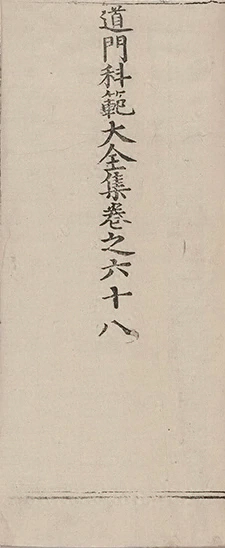 道門科範大全集卷之六十八